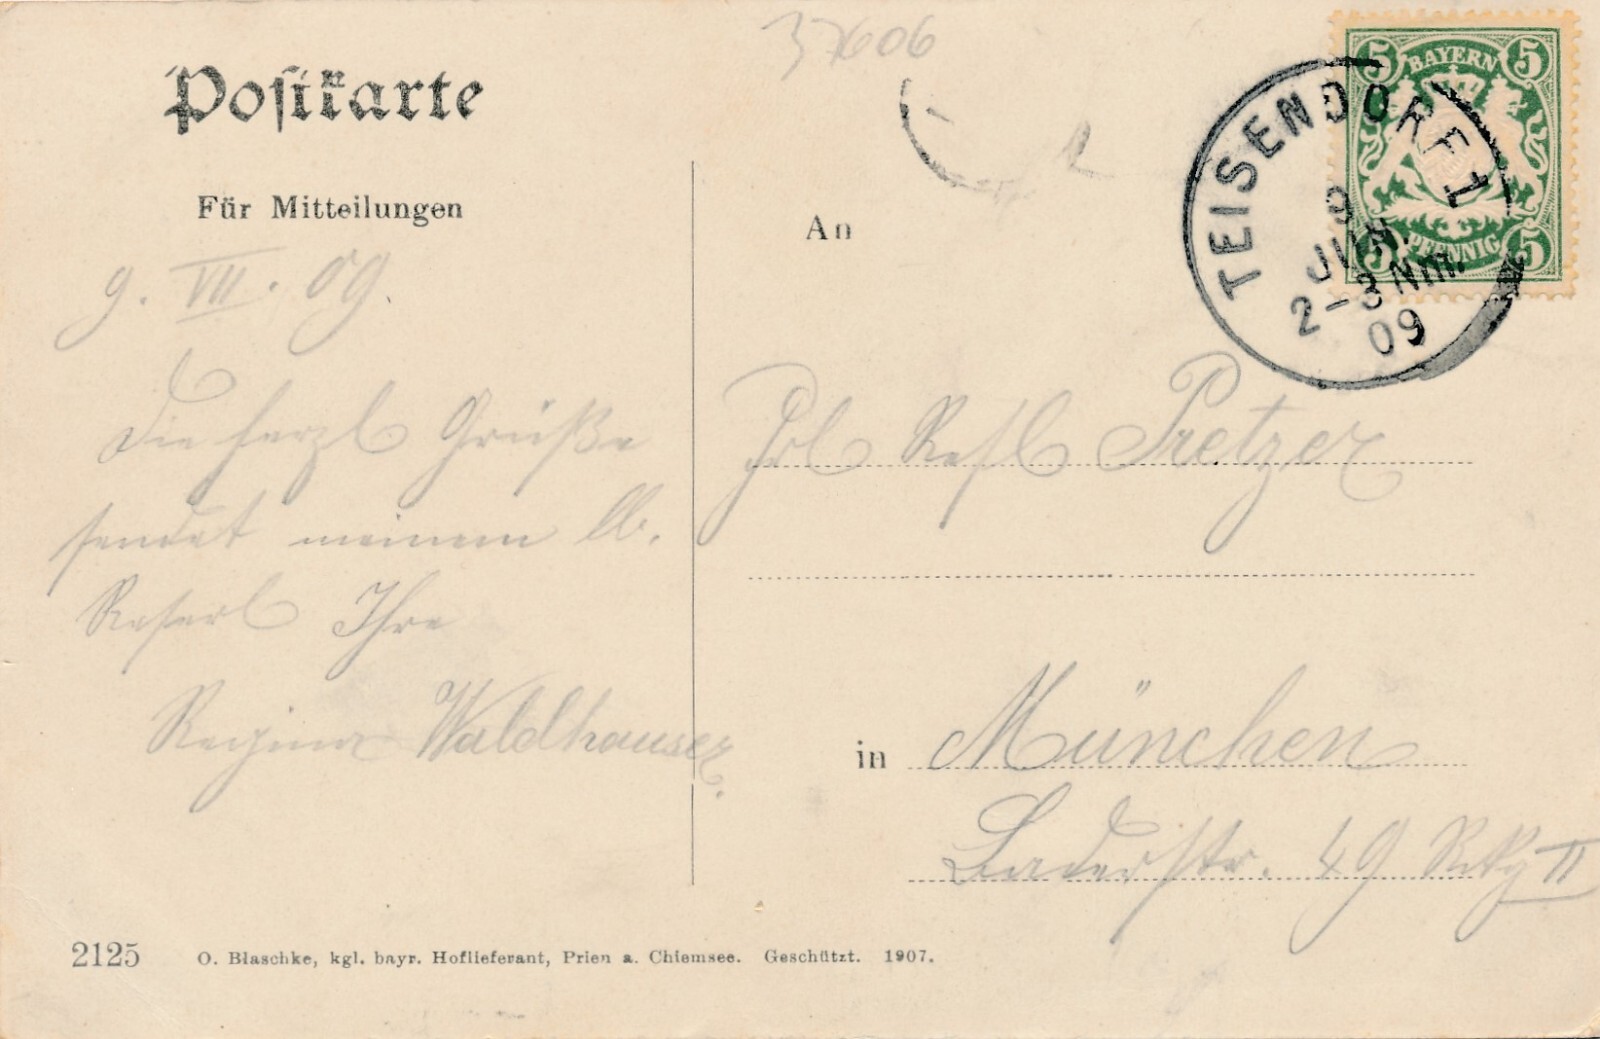 37606
Postkarte
Für Mitteilungen
9. VII. 09.
Die herzl Grüße
sendet meinem lb.
Reserl Ihre
Regina Waldhauser.
BAYERN
5 5
PFENNIG
5 5
TEISENDORF 1
9
JUN.
2-3 NM.
09
An
Frl Resl Pretzer
in München
Baderstr. 49 Rckg II
2125 O. Blaschke, kgl. bayr. Hoflieferant, Prien a. Chiemsee. Geschützt. 1907.